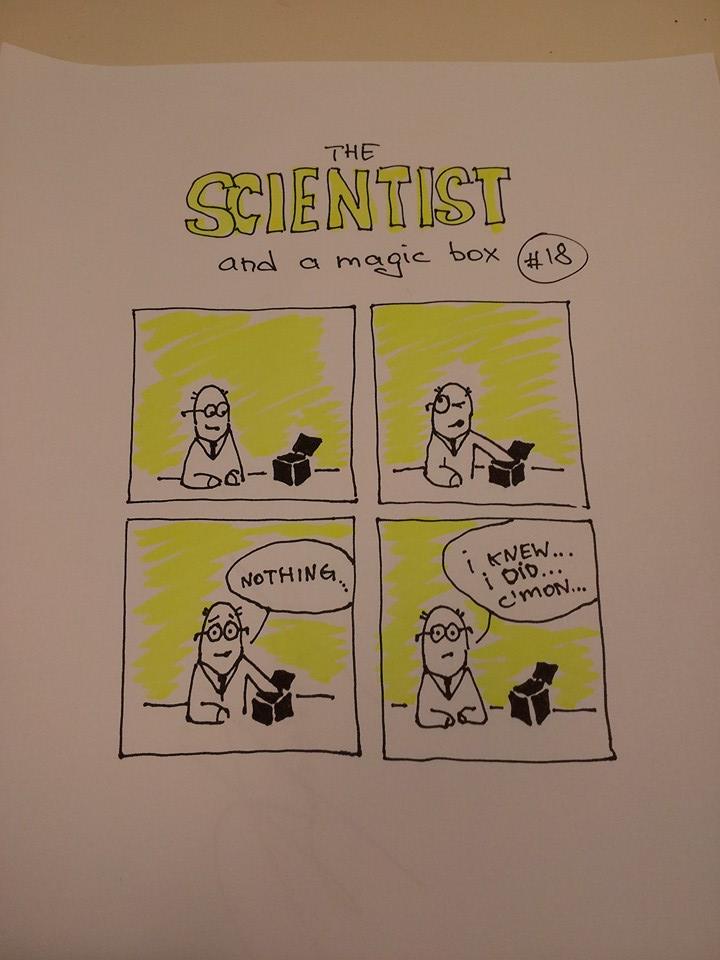 THE
SCIENTIST
and a magic box #18
NOTHING...
i KNEW...
i DID...
c'MON...